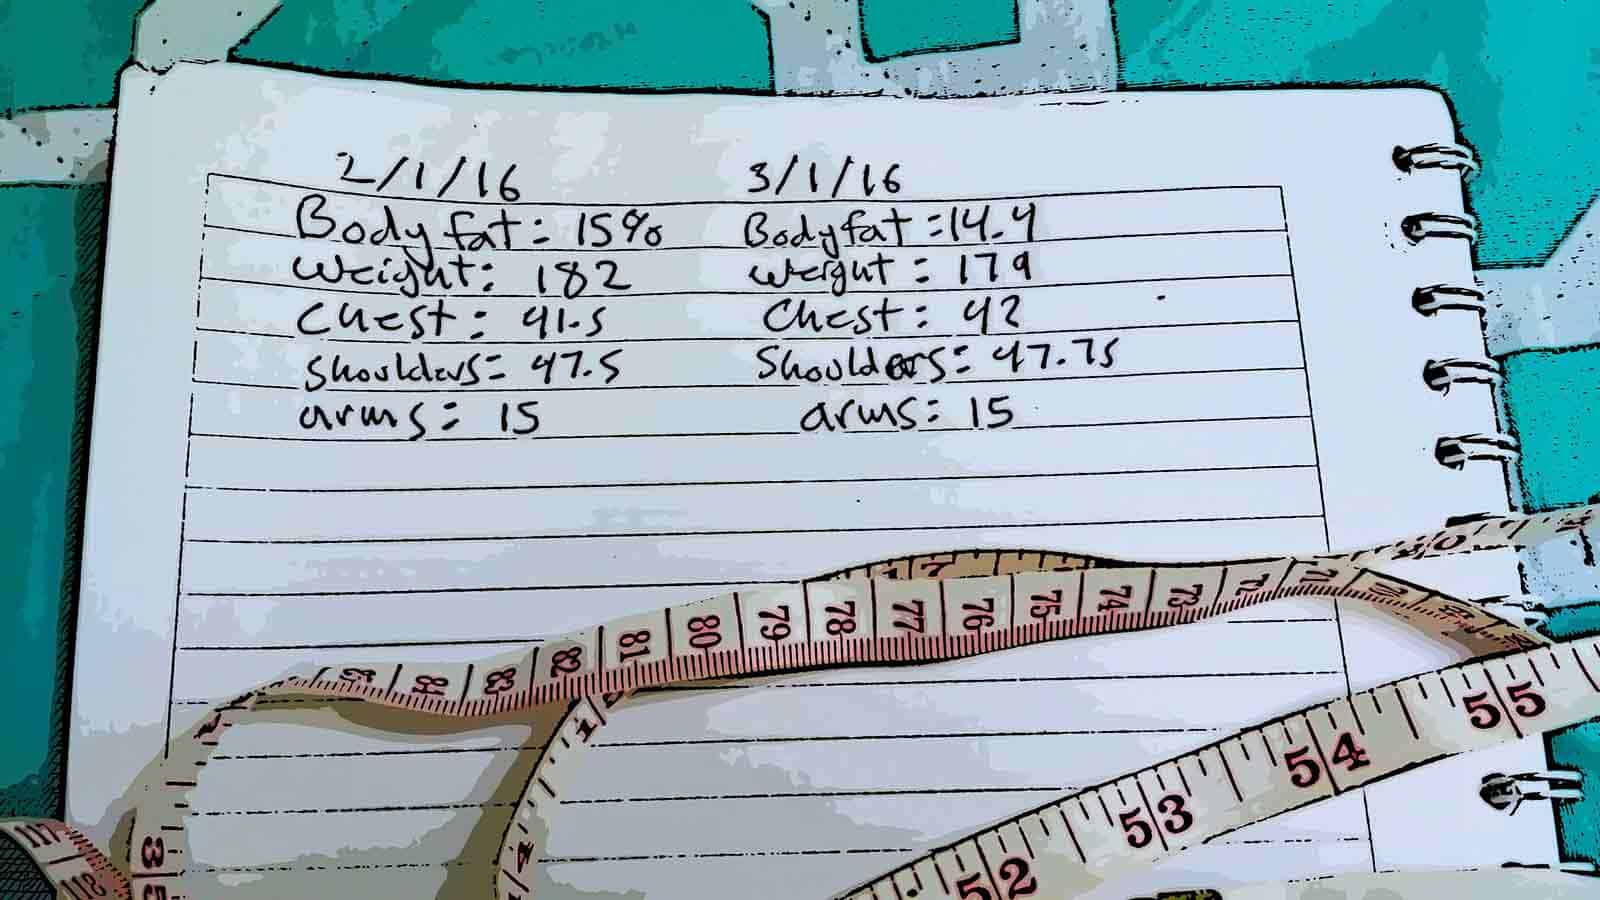 2/1/16 3/1/16
Body fat: 15% Bodyfat: 14.4
Weight: 182 Weight: 179
Chest: 41.5 Chest: 42
Shoulders: 47.5 Shoulders: 47.75
arms: 15 arms: 15
84 83 82 81 80 79 78 77 76 75 74 73 72 71
55
54
53
52